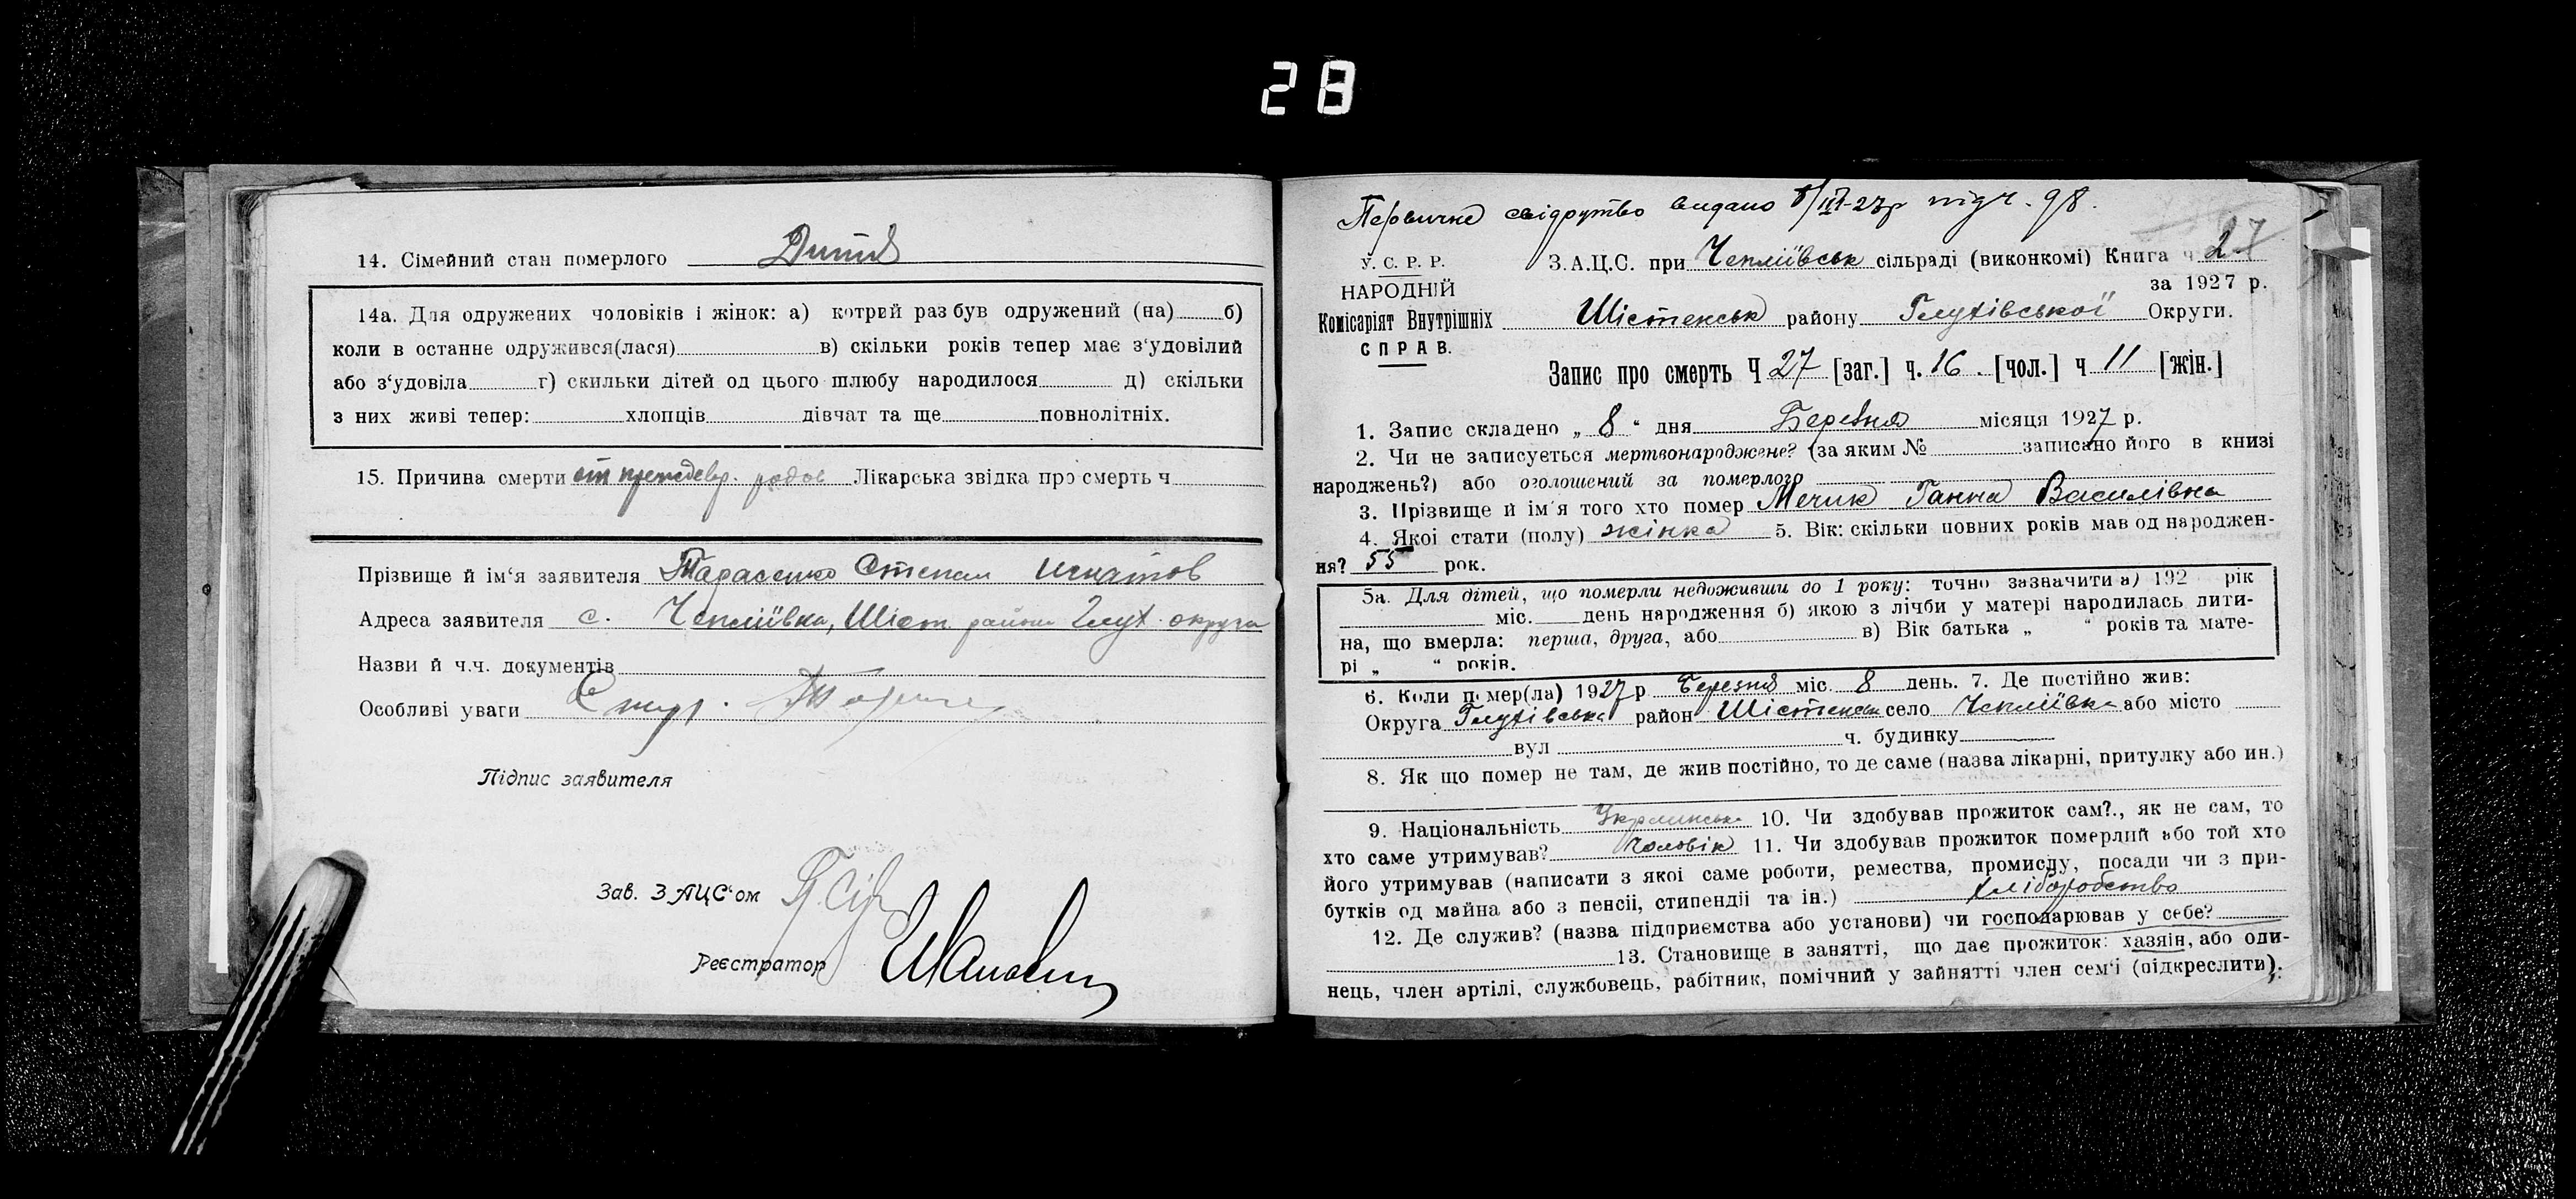 28
14. Сімейний стан померлого
14а. Для одружених чоловіків і жінок: а) котрий раз був одружений (на) б)
коли в останне одружився(лася) в) скільки років тепер має з‘удовілий
або з‘удовіла г) скильки дітей од цього шлюбу народилося д) скільки
з них живі тепер: хлопців дівчат та ще повнолітніх.
15. Причина смерти от преждевр. родов Лікарська звідка про смерть ч
Прізвище й ім‘я заявителя Тарасенко Степан Игнатов
Адреса заявителя с. Чепліївка, Шіст. району Глух. округи
Назви й ч.ч. документів
Особливі уваги
Підпис заявителя
Зав. ЗАЦС‘ом
Реєстратор
Первичне свідоцтво видано 8/III-27р під ч. 98.
У. С. Р. Р.
НАРОДНІЙ
Комісаріят Внутрішніх
СПРАВ.
З.А.Ц.С. при Чепліївськ сільраді (виконкомі) Книга ч 27
за 1927 р.
Шістенськ району Глухівської Округи.
Запис про смерть Ч 27 [заг.] ч. 16. [чол.] ч 11 [жін.]
1. Запис складено „ 8 “ дня Березня місяця 1927 р.
2. Чи не записуеться мертвонароджене? (за яким № записано його в книзі
народжень?) або оголошений за померлого
3. Прізвище й ім‘я того хто помер Мечик Ганна Василівна
4. Якоі стати (полу) жінка 5. Вік: скільки повних років мав од народжен-
ня? 55 рок.
5а. Для дітей, що померли недоживши до 1 року: точно зазначити а) 192 рік
міс. день народження б) якою з лічби у матері народилась дити-
на, що вмерла: перша, друга, або в) Вік батька „ “ років та мате-
рі „ “ років.
6. Коли помер(ла) 1927 р Березня міс. 8 день. 7. Де постійно жив:
Округа Глухівська район Шістенськ село Чепліївка або місто
вул ч. будинку
8. Як що помер не там, де жив постійно, то де саме (назва лікарні, притулку або ин.)
9. Національність Українська 10. Чи здобував прожиток сам?., як не сам, то
хто саме утримував? Чоловік 11. Чи здобував прожиток померлий або той хто
його утримував (написати з якоі саме роботи, ремества, промислу, посади чи з при-
бутків од майна або з пенсіі, стипендіі та ін.) хліборобство
12. Де служив? (назва підприємства або установи) чи господарював у себе?
13. Становище в занятті, що дає прожиток: хазяін, або оди-
нець, член артілі, службовець, рабітник, помічний у зайнятті член сем‘і (підкреслити).